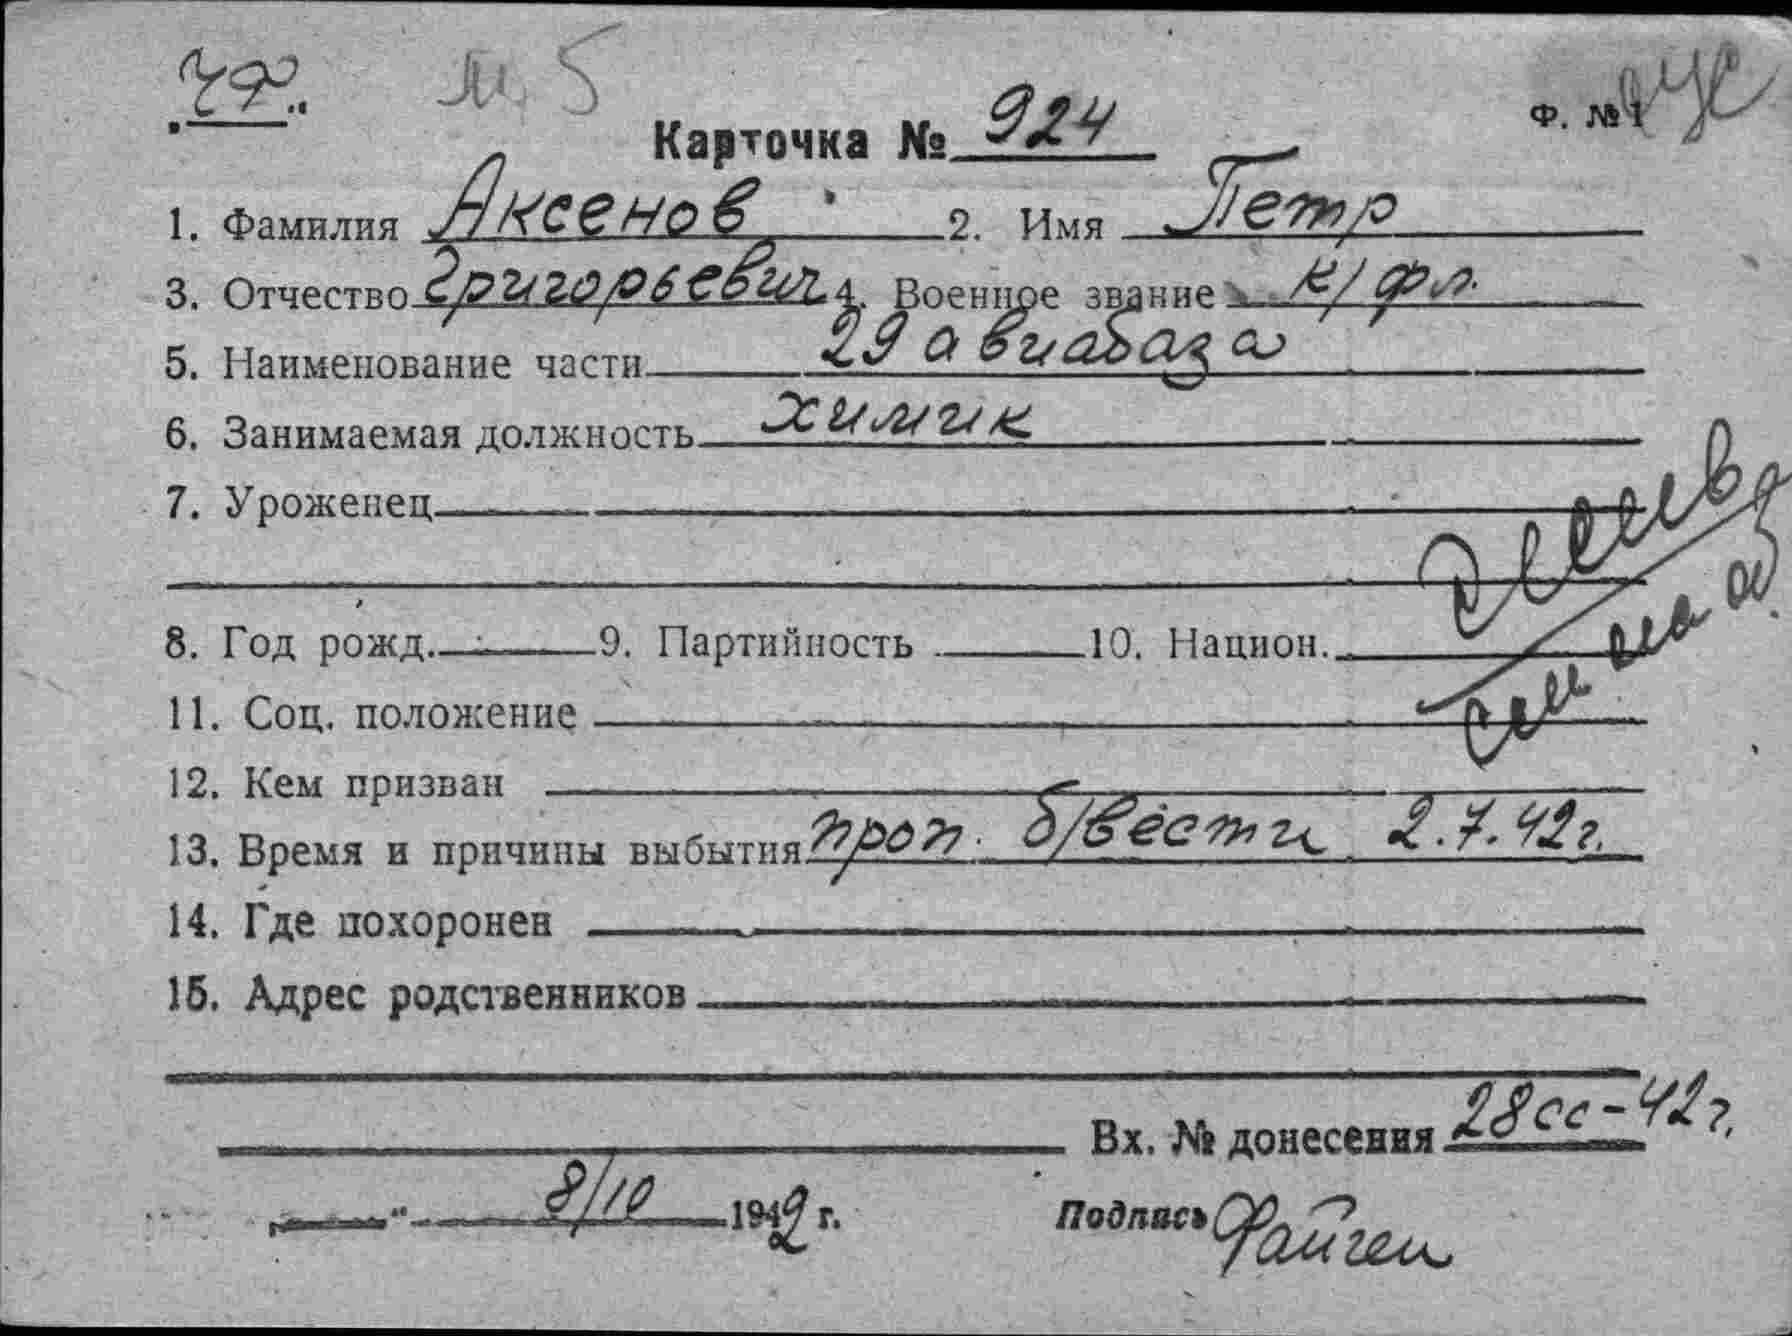 ЧФ.
М 5
Карточка № 924
Ф. № 1
1. Фамилия Аксенов 2. Имя Петр
3. Отчество Григорьевич 4. Военное звание к/фл.
5. Наименование части 29 авиабаза
6. Занимаемая должность химик
7. Уроженец
8. Год рожд. 9. Партийность 10. Национ.
11. Соц. положение
12. Кем призван
13. Время и причины выбытия проп. б/вести 2.7.42г.
14. Где похоронен
15. Адрес родственников
Вх. № донесения 28сс-42г.
„ " 8/10 1942 г. Подпись